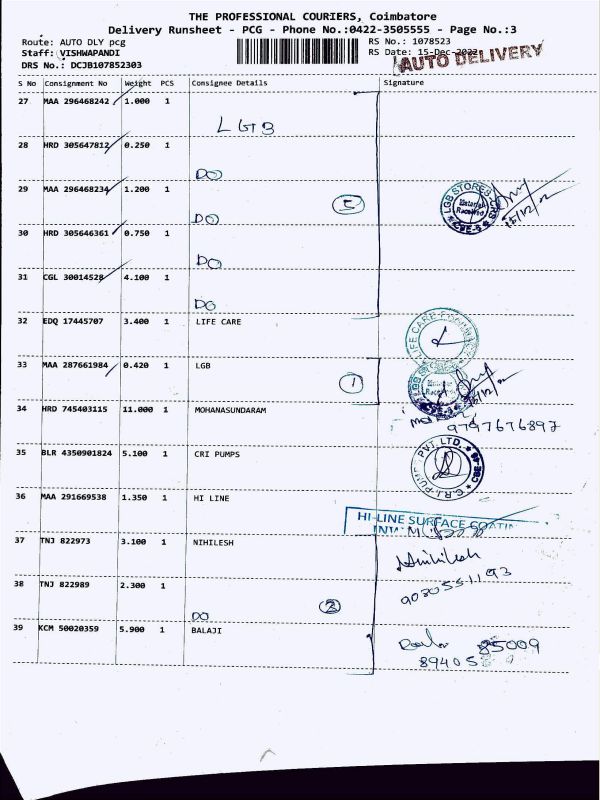 THE PROFESSIONAL COURIERS, Coimbatore
Delivery Runsheet - PCG - Phone No.:0422-3505555 - Page No.:3
Route: AUTO DLY pcg RS No.: 1078523
Staff: VISHWAPANDI RS Date: 15-Dec-2022
AUTO DELIVERY
DRS No.: DCJB107852303
S No Consignment No Weight PCS Consignee Details Signature
27 MAA 296468242 1.000 1
LGB
28 HRD 305647812 0.250 1
DO
29 MAA 296468234 1.200 1
LGB STORES
Material
Received
CBE-6
15/12/2
DO 5
30 HRD 305646361 0.750 1
DO
31 CGL 30014528 4.100 1
DO
32 EDQ 17445707 3.400 1 LIFE CARE
LIFE CARE
33 MAA 287661984 0.420 1 LGB
LGB
Material
Received
CBE-6
1
34 HRD 745403115 11.000 1 MOHANASUNDARAM
9797676897
35 BLR 4350901824 5.100 1 CRI PUMPS
C.R.I. PUMPS PVT. LTD.
CBE
36 MAA 291669538 1.350 1 HI LINE
HI-LINE SURFACE COATIN
37 TNJ 822973 3.100 1 NIHILESH
Nihilesh
9030551193
38 TNJ 822989 2.300 1
DO 2
39 KCM 50020359 5.900 1 BALAJI
85009
89405